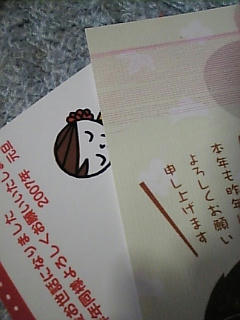 本年も昨年
よろしくお願い
申し上げます
お世話になりました
年同様よろしくお願いいたし
2007年 元旦